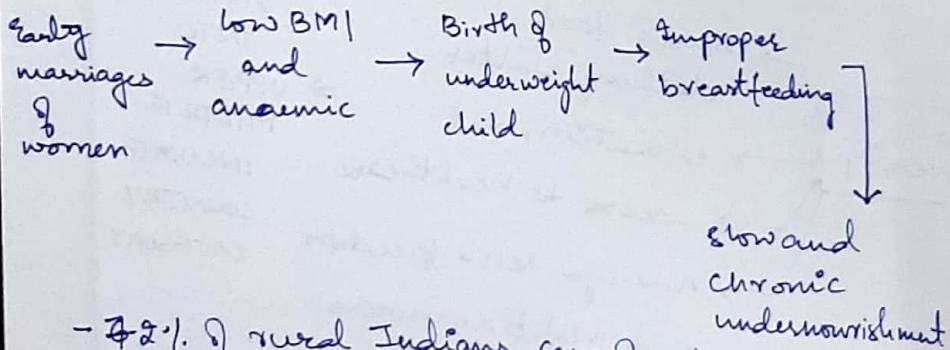 Early marriages of women → Low BMI and anaemic → Birth of underweight child → Improper breastfeeding
↓
slow and
chronic
undernourishment
- 42% of rural Indians